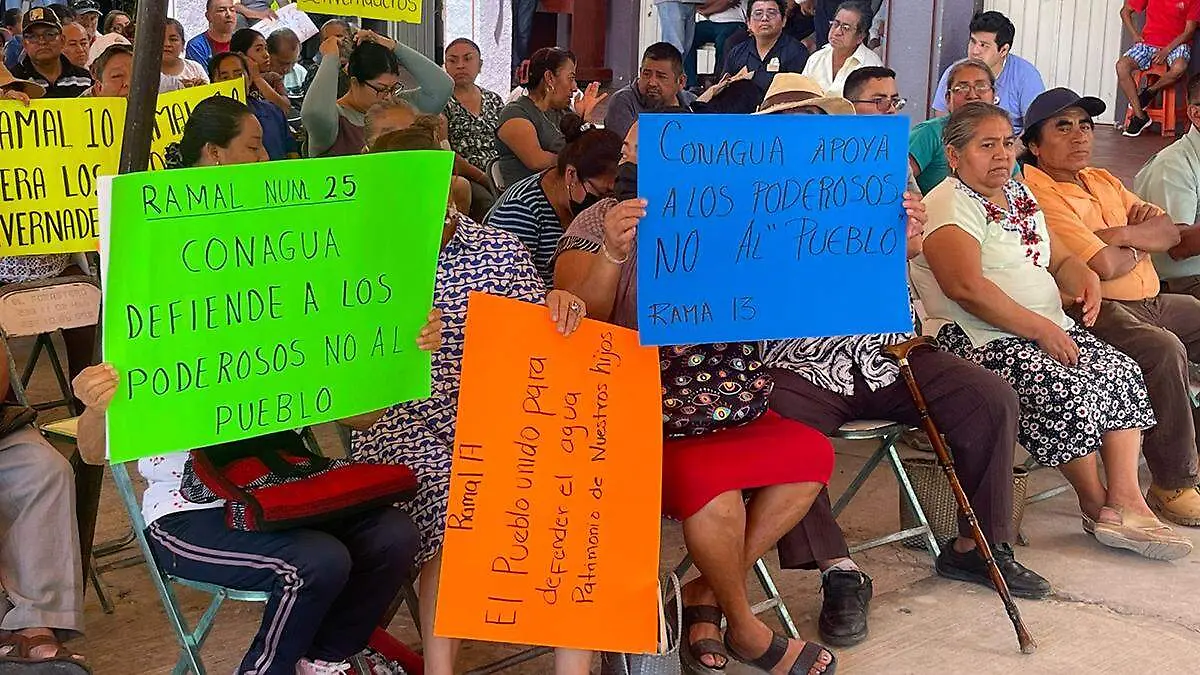 RAMAL 10
ERA LOS
NVERNADE
RAMAL NUM. 25
CONAGUA
DEFIENDE A LOS
PODEROSOS NO AL
PUEBLO
CONAGUA APOYA
A LOS PODEROSOS,
NO AL" PUEBLO
RAMA 13
Ramal A
El Pueblo unido para
defender el agua
Patrimonio de Nuestros hijos